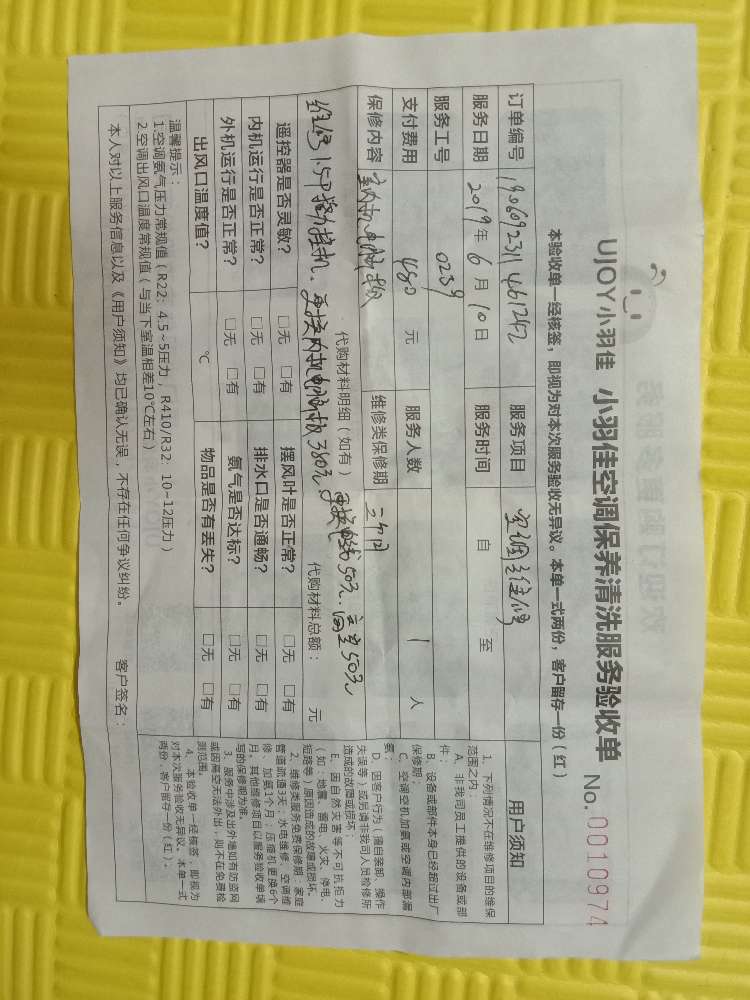 UJOY小羽佳 小羽佳空调保养清洗服务验收单
No. 0010974
本验收单一经核签，即视为对本次服务验收无异议。本单一式两份，客户留存一份（红）
订单编号 服务项目 空调维修
服务日期 2019年6月10日 服务时间 自 至
服务工号 0239
支付费用 480元 服务人数 1人
保修内容 室内机电脑板 维修类保修期 三个月
代购材料明细（如有） 代购材料总额： 元
维修1.5P 挂机. 更换内机电脑板380元 更换电线50元. 高空50元
遥控器是否灵敏？ □无 □有 摆风叶是否正常？ □无 □有
内机运行是否正常？ □无 □有 排水口是否通畅？ □无 □有
外机运行是否正常？ □无 □有 氨气是否达标？ □无 □有
出风口温度值？ ℃ 物品是否有丢失？ □无 □有
温馨提示：
1.空调氨气压力常规值（R22：4.5~5压力，R410/R32：10~12压力）
2.空调出风口温度常规值（与当下室温相差10℃左右）
本人对以上服务信息以及《用户须知》均已确认无误，不存在任何争议纠纷。 客户签名：
用户须知
1、下列情况不在维修项目的维保
范围之内：
A、非我司员工提供的设备或部
件；
B、设备或部件本身已经超过出厂
保修期；
C、空调空机加氨或空调内部漏
氨；
D、因客户行为（擅自装卸、操作
失误等）或另请非我司人员检修所
造成的故障或损坏；
E、因自然灾害等不可抗拒力
（如：地震、雷电、火灾、停电、
短路等）原因造成的故障或损坏。
2、维修类服务免费保修期：家庭
管道疏通3天；水电维修、空调维
修、加氨1个月；压缩机更换6个
月，其他维修项目以服务验收单填
写的保修期为准。
3、服务中涉及出外墙如有防盗网
或因高空无法外出，则不在免费检
测范围。
4、本验收单一经核签，即视为
对本次服务验收无异议。本单一式
两份，客户留存一份（红）；